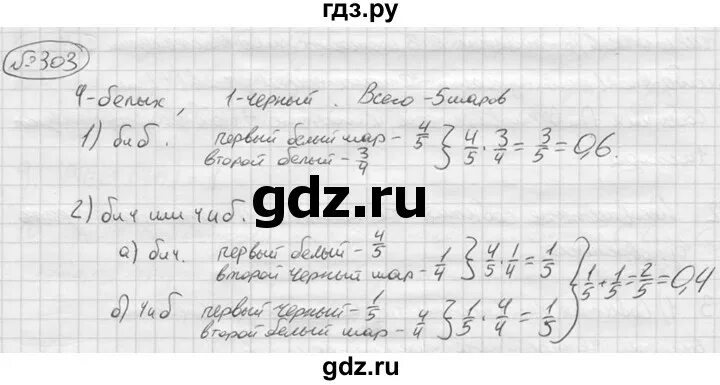 гдз.ру
№303
4-белых, 1-черный. Всего-5шаров
1) биб. первый белый шар- 4/5
второй белый- 3/4 } 4/5 · 3/4 = 3/5 = 0,6.
gdz.ru
2) бич или чиб.
а) бич. первый белый- 4/5
второй черный шар- 1/4 } 4/5 · 1/4 = 1/5
б) чиб первый черный- 1/5
второй белый шар- 4/4 } 1/5 · 4/4 = 1/5
} 1/5 + 1/5 = 2/5 = 0,4
gdz.ru